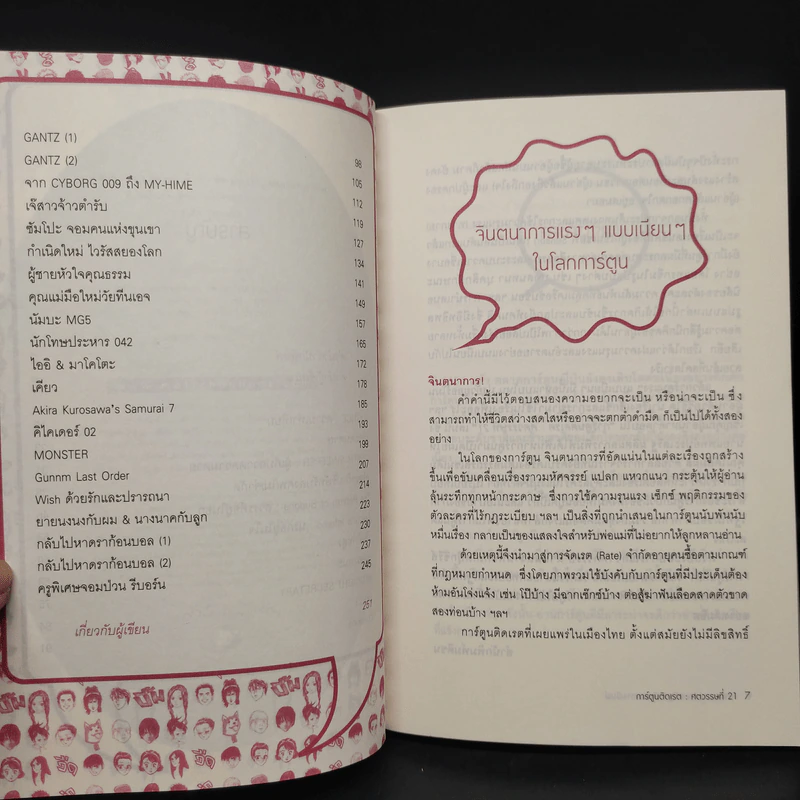 GANTZ (1)
GANTZ (2) 98
จาก CYBORG 009 ถึง MY-HIME 105
เจ๊สาวจ้าวตำรับ 112
ซัมโปะ จอมคนแห่งขุนเขา 119
กำเนิดใหม่ ไวรัสสยองโลก 127
ผู้ชายหัวใจคุณธรรม 134
คุณแม่มือใหม่วัยทีนเอจ 141
นัมบะ MG5 149
นักโทษประหาร 042 157
ไออิ & มาโคโตะ 165
เคียว 172
Akira Kurosawa's Samurai 7 178
คิไคเดอร์ 02 185
MONSTER 193
Gunnm Last Order 199
Wish ด้วยรักและปรารถนา 207
ยายนงนงกับผม & นางนาคกับลูก 214
กลับไปหาดราก้อนบอล (1) 223
กลับไปหาดราก้อนบอล (2) 230
ครูพิเศษจอมป่วน รีบอร์น 237
245
เกี่ยวกับผู้เขียน 257
จินตนาการแรงๆ แบบเนียนๆ
ในโลกการ์ตูน
จินตนาการ!
ค่าคำนี้มีไว้ตอบสนองความอยากจะเป็น หรือน่าจะเป็น ซึ่ง
สามารถทำให้ชีวิตสว่างสดใสหรืออาจจะตกต่ำดำมืด ก็เป็นไปได้ทั้งสอง
อย่าง
ในโลกของการ์ตูน จินตนาการที่อัดแน่นในแต่ละเรื่องถูกสร้าง
ขึ้นเพื่อขับเคลื่อนเรื่องราวมหัศจรรย์ แปลก แหวกแนว กระตุ้นให้ผู้อ่าน
ลุ้นระทึกทุกหน้ากระดาษ ซึ่งการใช้ความรุนแรง เซ็กซ์ พฤติกรรมของ
ตัวละครที่ไร้กฎระเบียบ ฯลฯ เป็นสิ่งที่ถูกนำเสนอในการ์ตูนนับพันนับ
หมื่นเรื่อง กลายเป็นของแสลงใจสำหรับพ่อแม่ที่ไม่อยากให้ลูกหลานอ่าน
ด้วยเหตุนี้จึงนำมาสู่การจัดเรต (Rate) จำกัดอายุคนซื้อตามเกณฑ์
ที่กฎหมายกำหนด ซึ่งโดยภาพรวมใช้บังคับกับการ์ตูนที่มีประเด็นต้อง
ห้ามอันโจ่งแจ้ง เช่น โป๊บ้าง มีฉากเซ็กซ์บ้าง ต่อสู้ฆ่าฟันเลือดสาดตัวขาด
สองท่อนบ้าง ฯลฯ
การ์ตูนติดเรตที่เผยแพร่ในเมืองไทย ตั้งแต่สมัยยังไม่มีลิขสิทธิ์
การ์ตูนติดเรต : ศตวรรษที่ 21 7